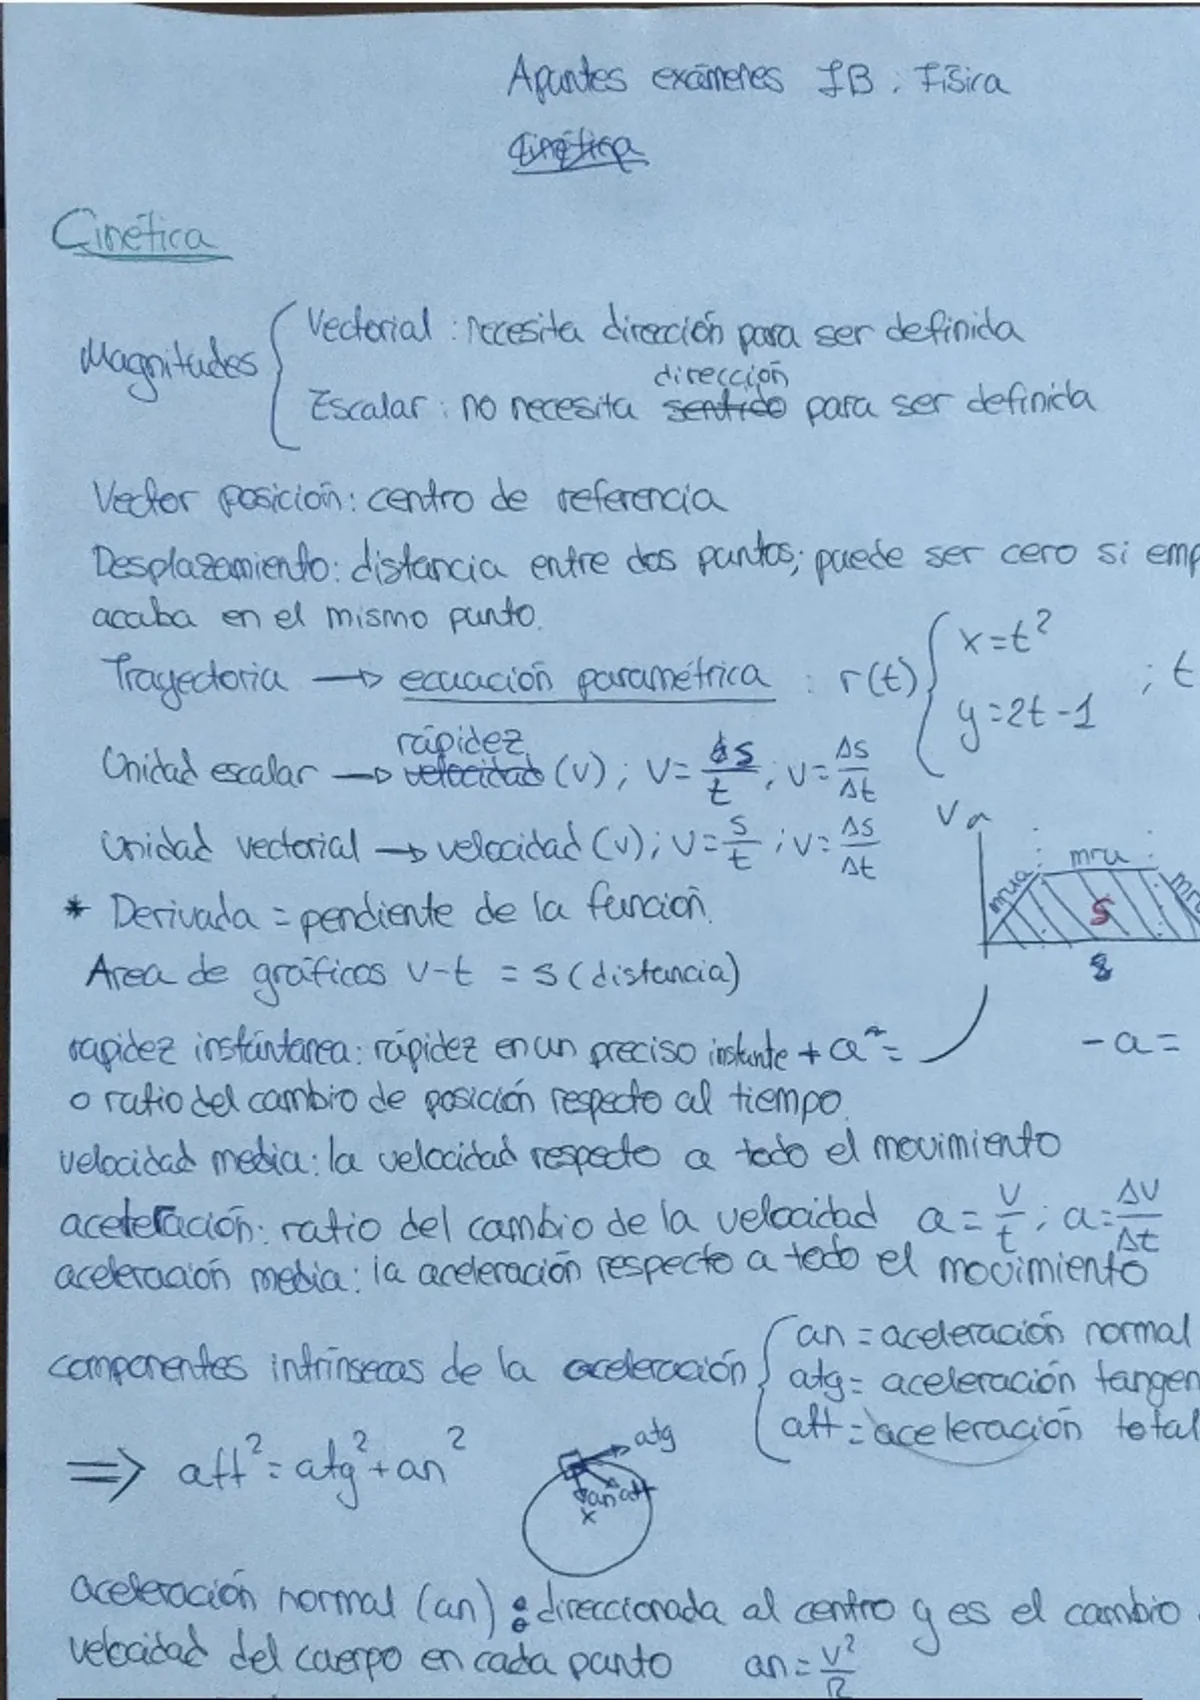 Apuntes exámenes IB. Física
Cinética
Cinética
Magnitudes { Vectorial: necesita dirección para ser definida
dirección
Escalar: no necesita sentido para ser definida
Vector posición: centro de referencia
Desplazamiento: distancia entre dos puntos; puede ser cero si emp
acaba en el mismo punto.
Trayectoria → ecuación paramétrica : r(t) { x=t² y=2t-1 ; t
rápidez
Unidad escalar → velocidad (v); v= Δs/t ; v= Δs/Δt
Unidad vectorial → velocidad (v); v= s/t ; v= Δs/Δt
V
mrua mru
S
* Derivada = pendiente de la función.
Area de gráficos v-t = s (distancia)
rapidez instántanea: rápidez en un preciso instante + a =
- a =
o ratio del cambio de posición respecto al tiempo.
velocidad media: la velocidad respecto a todo el movimiento
aceleración: ratio del cambio de la velocidad a= v/t ; a= Δv/Δt
aceleración media: la aceleración respecto a todo el movimiento
componentes intrínsecas de la aceleración { an = aceleración normal
atg = aceleración tangen
att = aceleración total
⇒ att² = atg² + an²
atg
an att
x
aceleración normal (an): direccionada al centro y es el cambio
velocidad del cuerpo en cada punto an = v²/R